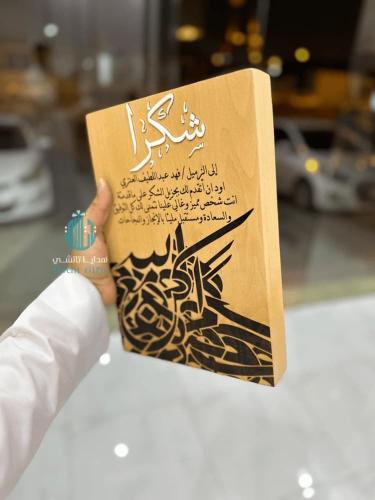 شكرا
إلى الزميل / فهد عبداللطيف العنزي
اود ان اتقدم لك بجزيل الشكر على ماقدمة
انت شخص مميز وغالي علينا نتمنى لك كل التوفيق
والسعادة ومستقبل مليئا بالإنجاز والنجاحات
هدايا تاتشي